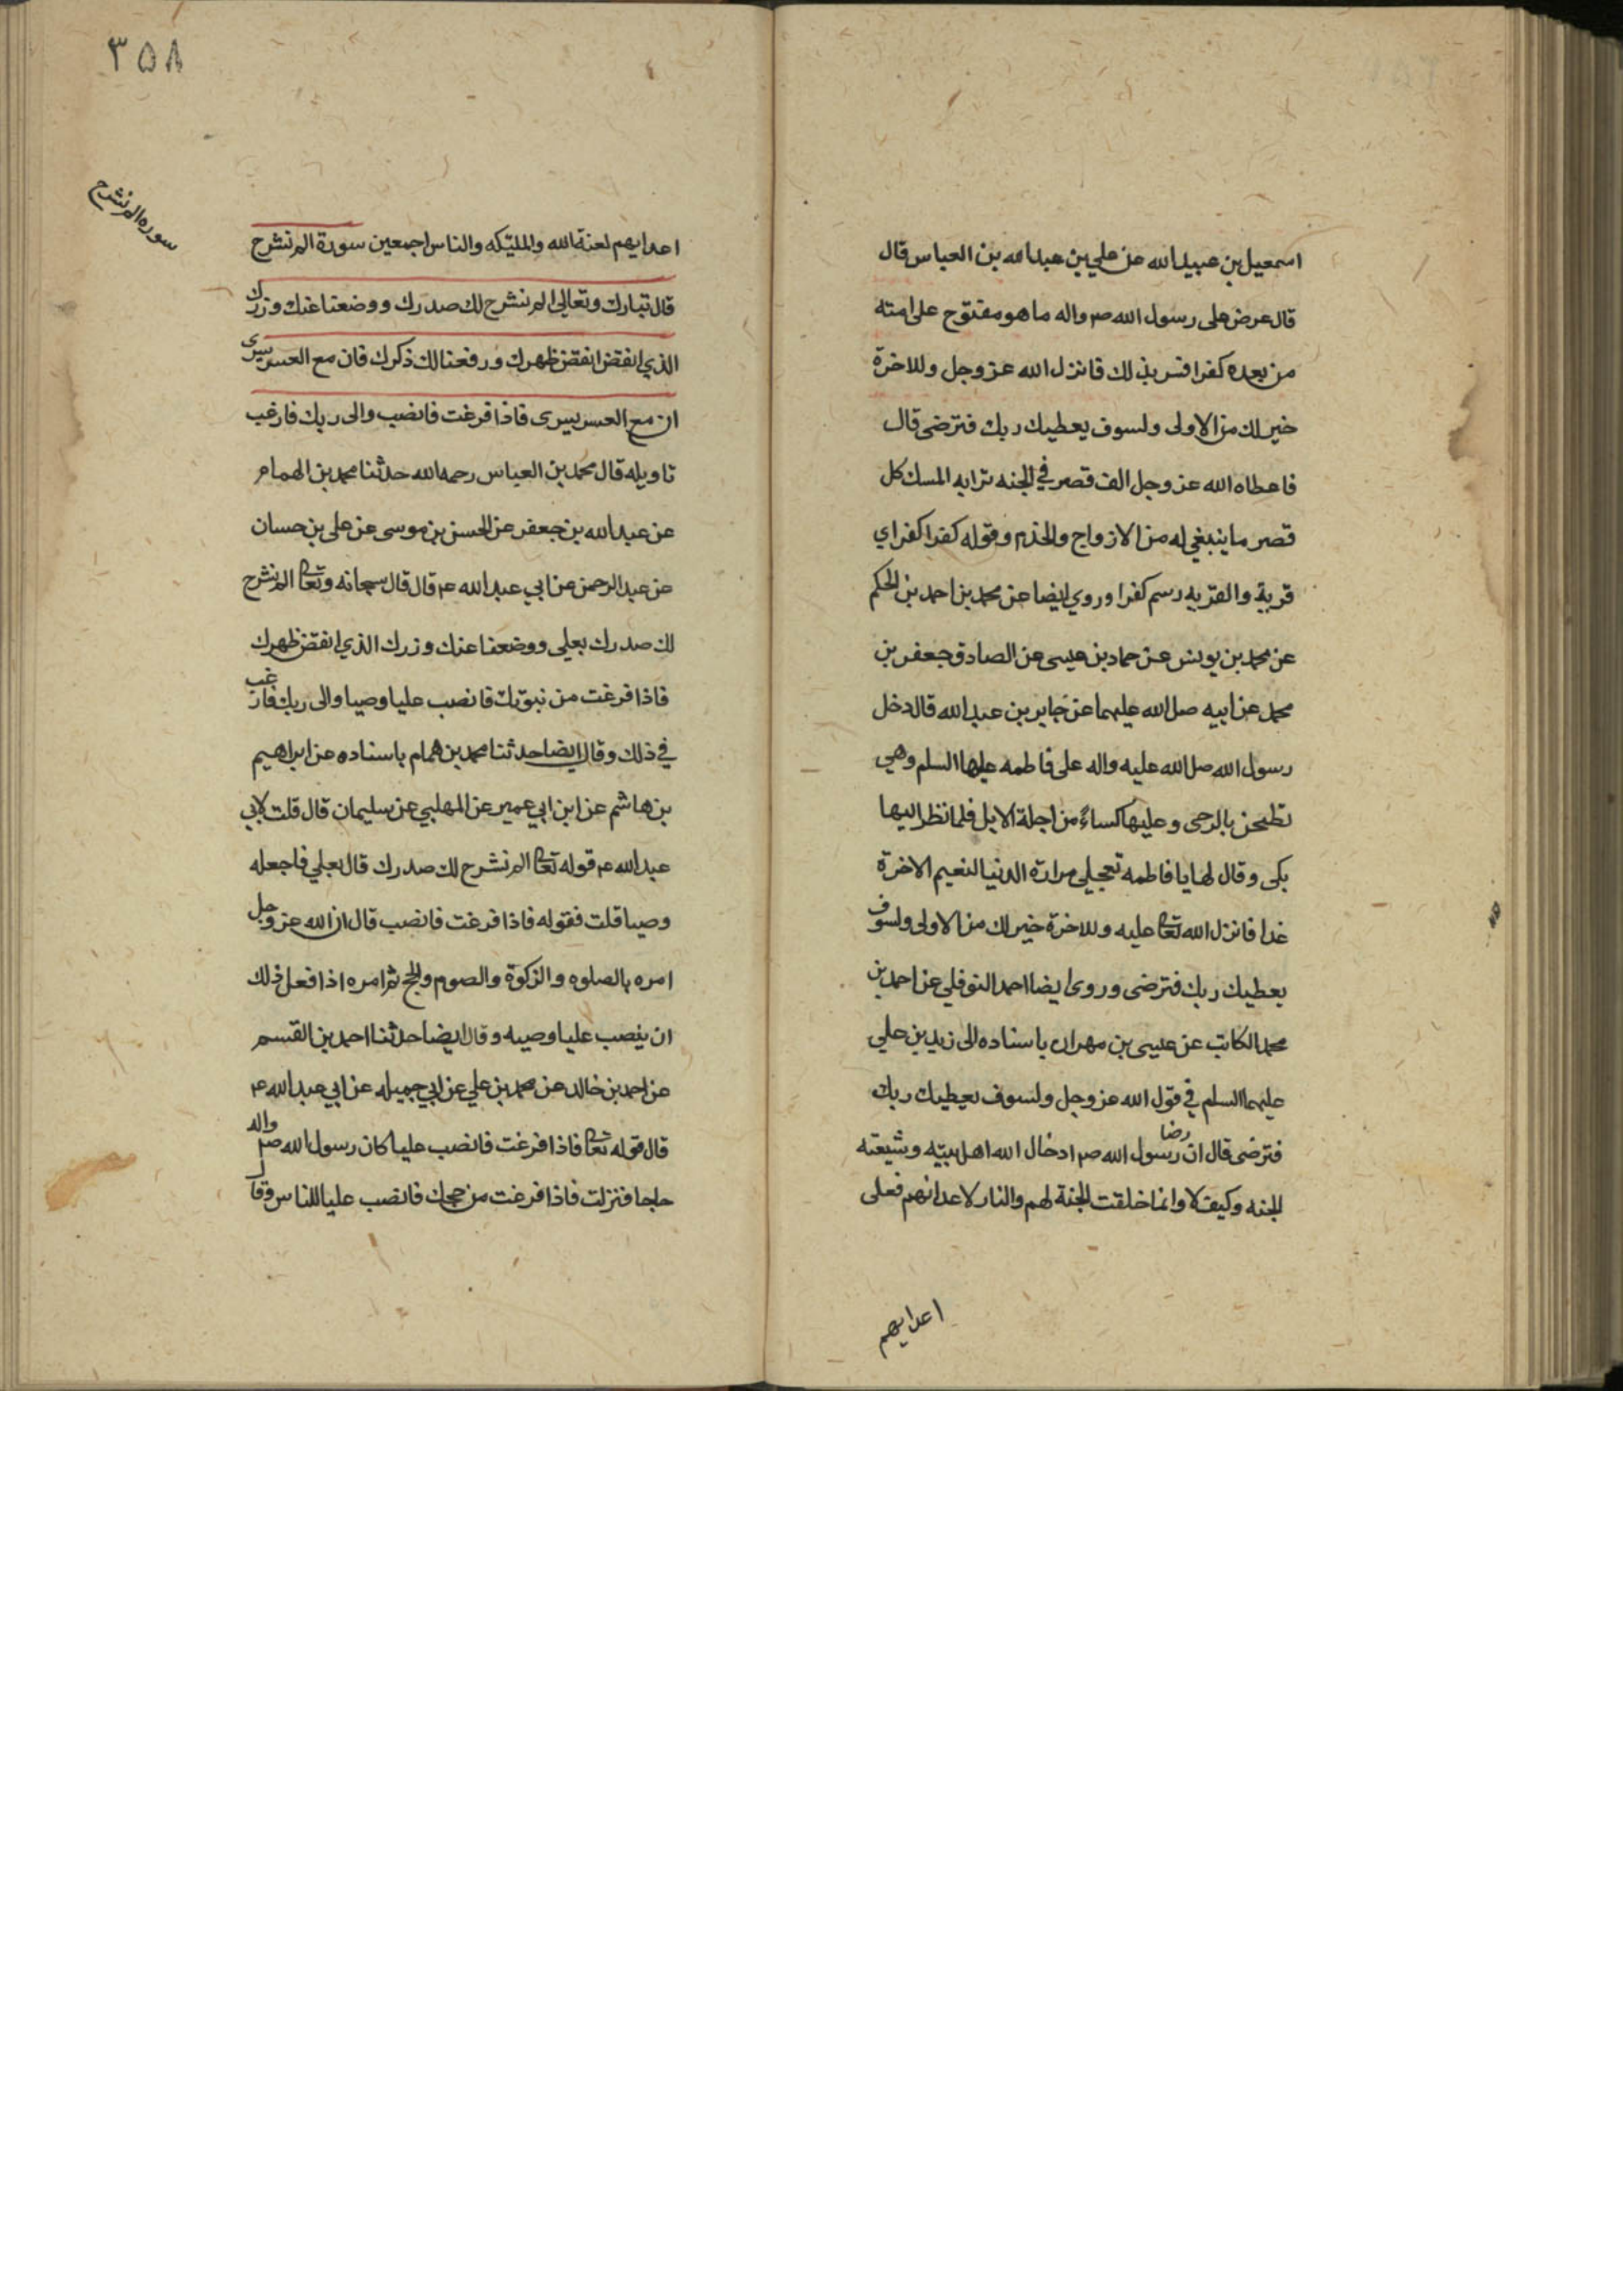 اسمعيل بن عبيد الله عن علي بن عبد الله بن العباس قال
قال عرض على رسول الله صم واله ما هو مفتوح على امته
من بعده كفرا فسر بذلك فانزل الله عز وجل وللاخرة
خير لك من الاولى ولسوف يعطيك ربك فترضى قال
فاعطاه الله عز وجل الف قصر في الجنه ترابه المسك كل
قصر ما ينبغي له من الازواج والخدم وقوله كفرا كفرا اي
قرية والقريه رسم كفرا وروي ايضا عن محمد بن احمد بن الحكم
عن محمد بن يونس عن حماد بن عيسى عن الصادق جعفر بن
محمد عن ابيه صل الله عليهما عن جابر بن عبد الله قال دخل
رسول الله صل الله عليه واله على فاطمه عليها السلم وهي
تطحن بالرحى وعليها كساءً من اجلة الابل فلما نظر اليها
بكى وقال لها يا فاطمه تعجلي مرارة الدنيا لنعيم الاخرة
غدا فانزل الله تعا عليه وللاخرة خير لك من الاولى ولسوف
يعطيك ربك فترضى وروى ايضا احمد النوفلي عن احمد بن
محمد الكاتب عن عيسى بن مهران باسناده الى زيد بن علي
عليهما السلم في قول الله عز وجل ولسوف يعطيك ربك
فترضى قال ان رضا رسول الله صم ادخال الله اهل بيته وشيعته
الجنه وكيف لا وانما خلقت الجنة لهم والنار لاعدائهم فعلى
اعدايهم
٣٥٨
سوره الم نشرح
اعدايهم لعنة الله والمليكه والناس اجمعين سورة الم نشرح
قال تبارك وتعالى الم نشرح لك صدرك ووضعنا عنك وزرك
الذي انقض انقض ظهرك ورفعنا لك ذكرك فان مع العسر يسرى
ان مع العسر يسرى فاذا فرغت فانصب والى ربك فارغب
تاويله قال محمد بن العباس رحمه الله حدثنا محمد بن الهمام
عن عبد الله بن جعفر عن الحسن بن موسى عن على بن حسان
عن عبد الرحمن عن ابي عبد الله ع قال قال سبحانه وتعا الم نشرح
لك صدرك بعلى ووضعنا عنك وزرك الذي انقض ظهرك
فاذا فرغت من نبوتك فانصب عليا وصيا والى ربك فارغب
في ذلك وقال ايضا حدثنا محمد بن همام باسناده عن ابراهيم
بن هاشم عن ابن ابي عمير عن المهلبي عن سليمان قال قلت لابي
عبد الله ع قوله تعا الم نشرح لك صدرك قال بعلي فاجعله
وصيا قلت فقوله فاذا فرغت فانصب قال ان الله عز وجل
امره بالصلوه والزكوة والصوم والحج ثم امره اذا فعل ذلك
ان ينصب عليا وصيه وقال ايضا حدثنا احمد بن القسم
عن احمد بن خالد عن محمد بن علي عن ابي جميله عن ابي عبد الله ع
قال قوله تعا فاذا فرغت فانصب عليا كان رسول الله صم واله
حاجا فنزلت فاذا فرغت من حجك فانصب عليا للناس وقال